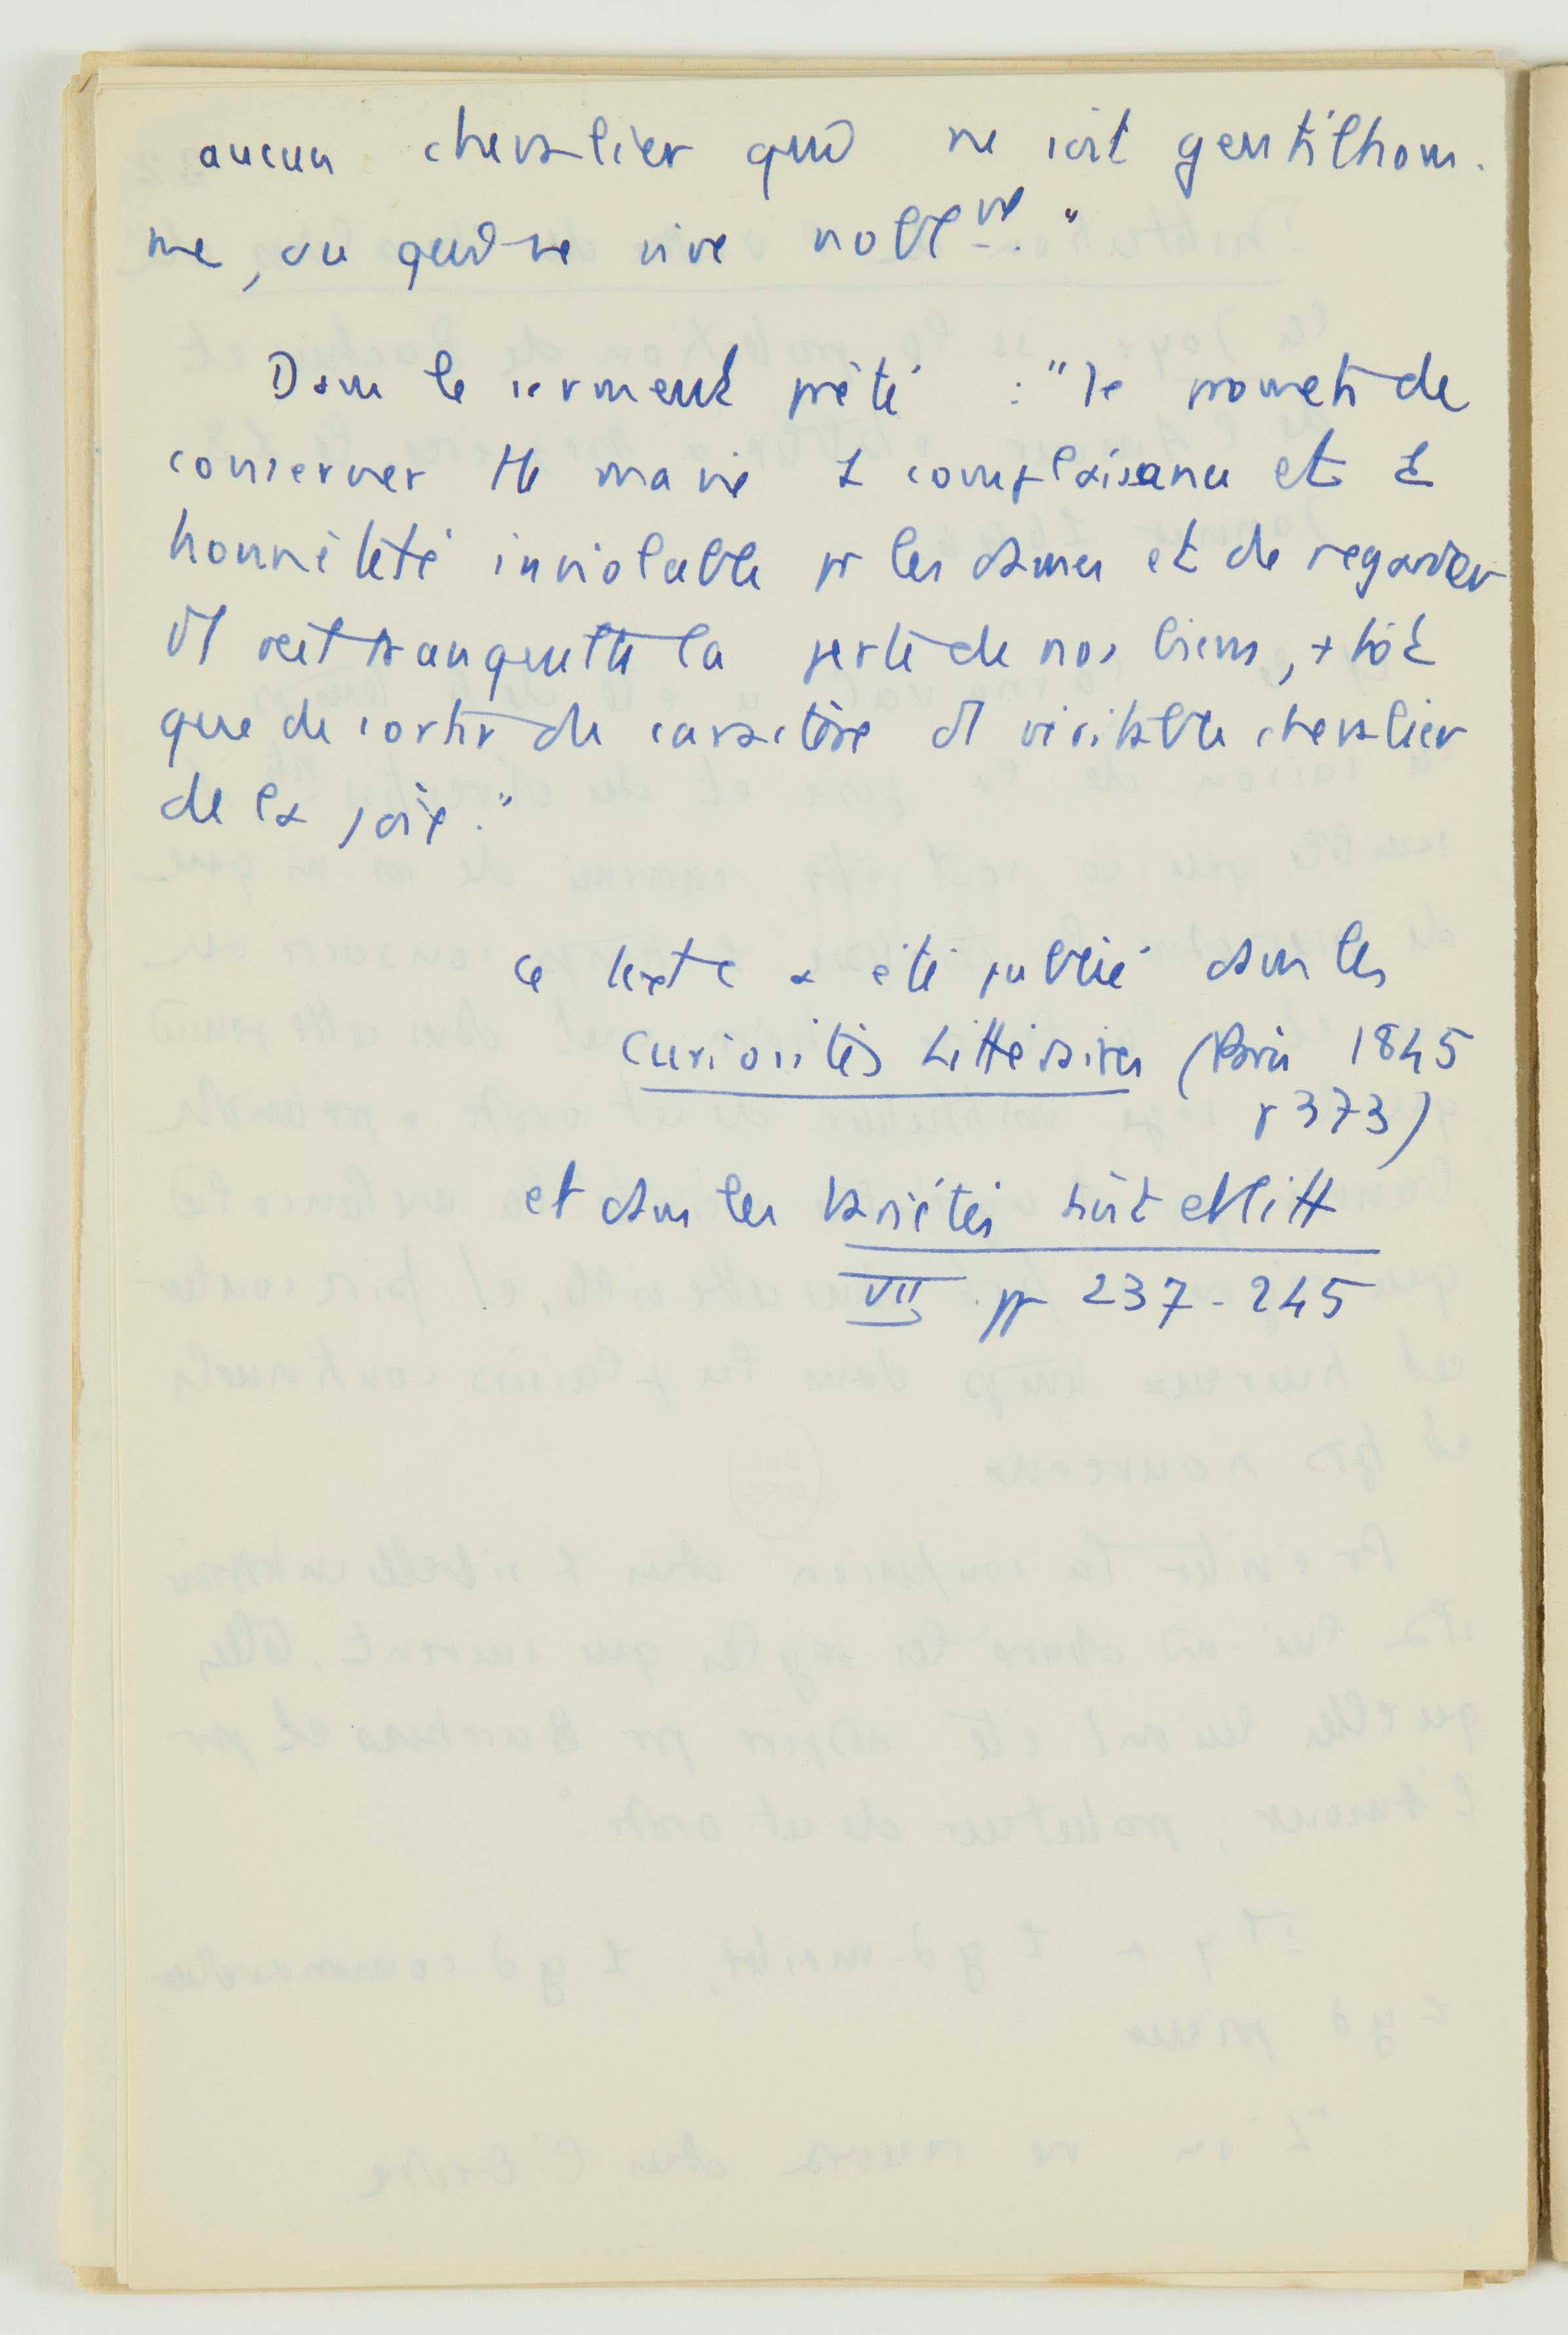 aucun chevalier qui ne soit gentilhom-
me, ou qui ne vive noblemt."
Dans le serment prêté : "Je promets de
conserver tte ma vie 1 complaisance et 1
honnêteté inviolable pr les dames et de regarder
tranquillt la perte de nos biens, + tôt
que de sortir du caractère d'1 véritable chevalier
de la joie."
Ce texte a été publié dans les
Curiosités Littéraires (Paris 1845
p 373)
et dans les Variétés hist et litt
VII pp 237-245